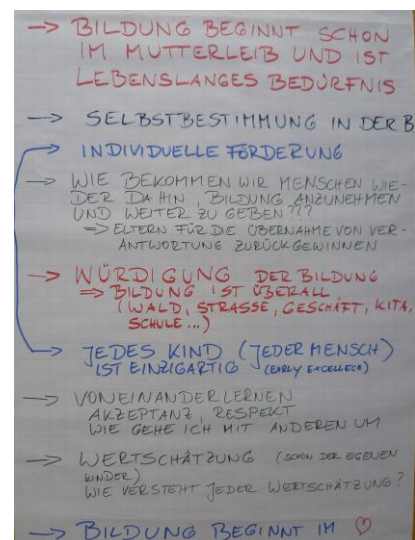 → BILDUNG BEGINNT SCHON
IM MUTTERLEIB UND IST
LEBENSLANGES BEDÜRFNIS
→ SELBSTBESTIMMUNG IN DER B
→ INDIVIDUELLE FÖRDERUNG
→ WIE BEKOMMEN WIR MENSCHEN WIE-
DER DAHIN, BILDUNG ANZUNEHMEN
UND WEITER ZU GEBEN???
⇒ ELTERN FÜR DIE ÜBERNAHME VON VER-
ANTWORTUNG ZURÜCKGEWINNEN
→ WÜRDIGUNG DER BILDUNG
⇒ BILDUNG IST ÜBERALL
(WALD, STRASSE, GESCHÄFT, KITA,
SCHULE...)
→ JEDES KIND (JEDER MENSCH)
IST EINZIGARTIG (EARLY EXCELLECE)
→ VONEINANDER LERNEN
AKZEPTANZ, RESPEKT
WIE GEHE ICH MIT ANDEREN UM
→ WERTSCHÄTZUNG (SCHON DER EIGENEN
KINDER)
WIE VERSTEHT JEDER WERTSCHÄTZUNG?
→ BILDUNG BEGINNT IM ♡